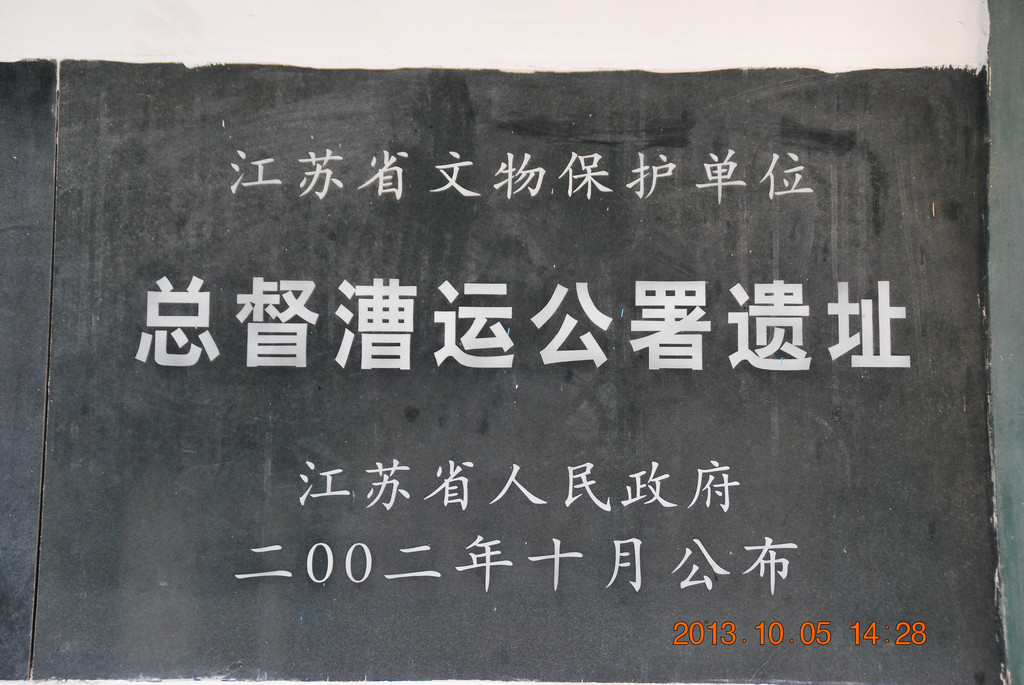 江苏省文物保护单位
总督漕运公署遗址
江苏省人民政府
二00二年十月公布
2013.10.05 14:28